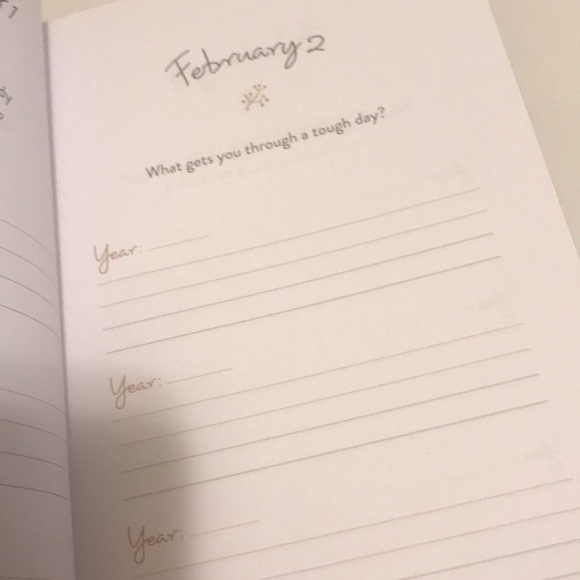 February 2
What gets you through a tough day?
Year:
Year:
Year: